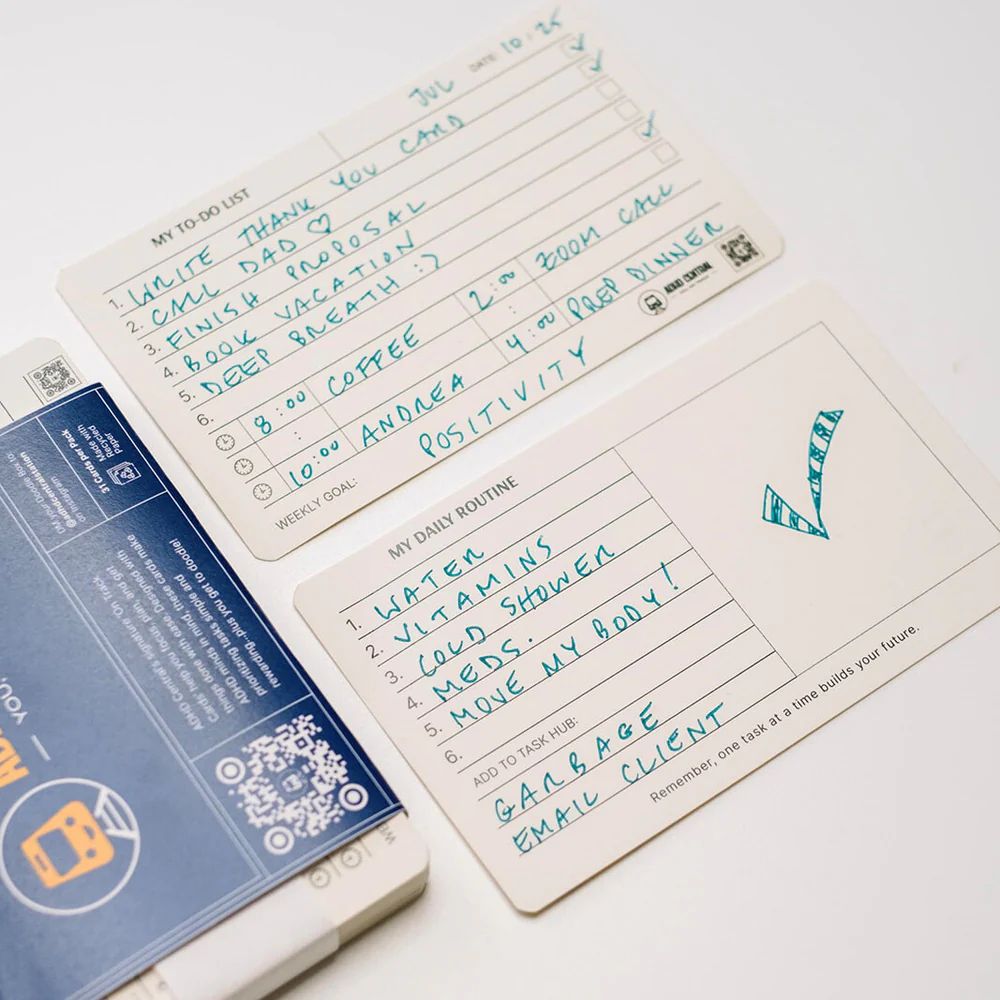 MY TO-DO LIST
JUL DATE: 10 / 25
1. WRITE THANK YOU CARD
2. CALL DAD ♡
3. FINISH PROPOSAL
4. BOOK VACATION
5. DEEP BREATH :)
6.
8:00 COFFEE 2:00 ZOOM CALL
: :
10:00 ANDREA 4:00 PREP DINNER
WEEKLY GOAL: POSITIVITY
ADHD CENTRAL
MY DAILY ROUTINE
1. WATER
2. VITAMINS
3. COLD SHOWER
4. MEDS.
5. MOVE MY BODY!
6.
ADD TO TASK HUB:
GARBAGE
EMAIL CLIENT
Remember, one task at a time builds your future.
31 Cards per Pack
Made with
Recycled
Paper
DM your Doodle Box to:
@adhdcentralstation
on Instagram
ADHD Central's signature On Track
Cards help you focus, plan, and get
things done with ease. Designed with
ADHD minds in mind, these cards make
prioritizing tasks simple and
rewarding...plus you get to doodle!